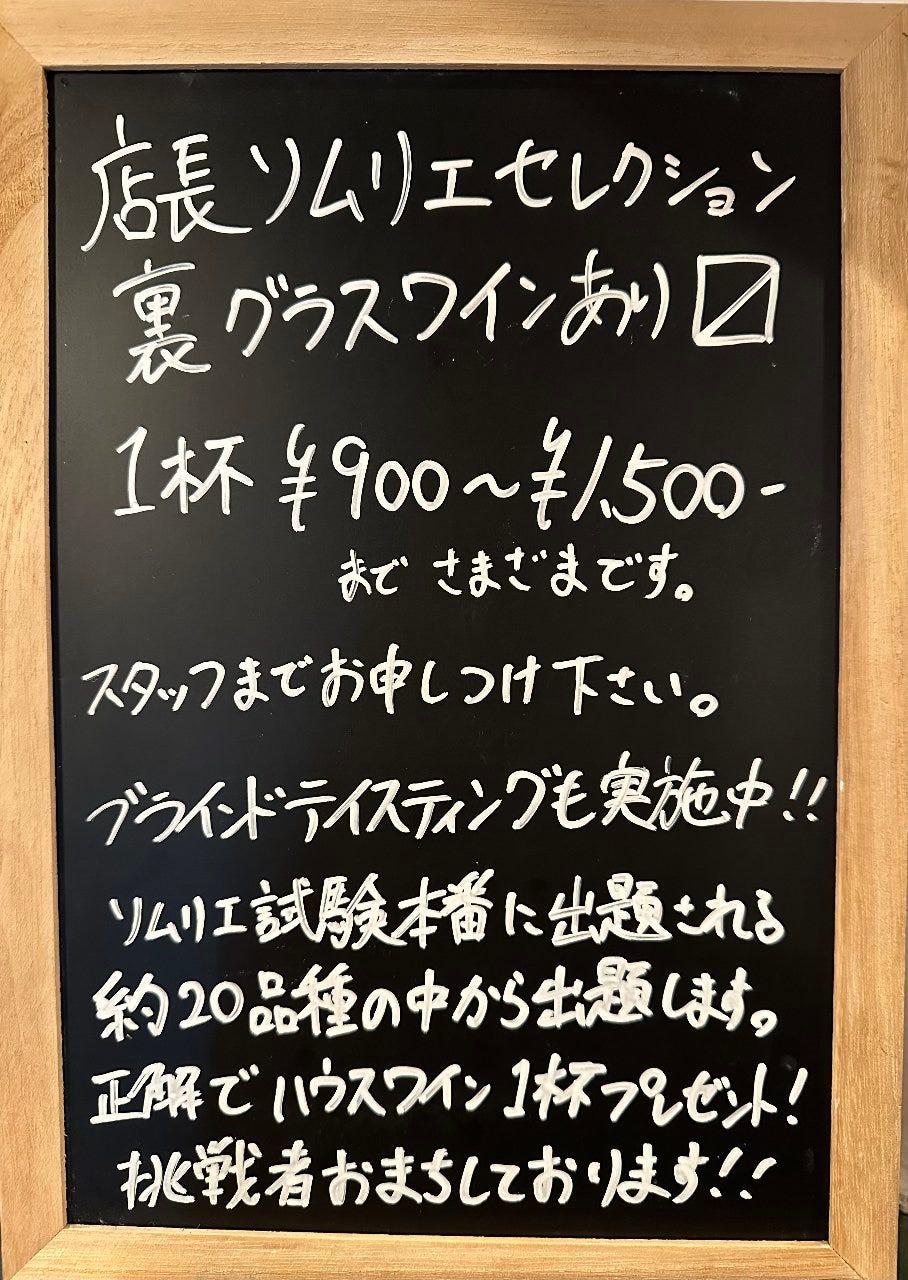 店長ソムリエセレクション
裏グラスワインあり〼
1杯 ¥900～¥1,500-
まで さまざまです。
スタッフまでお申しつけ下さい。
ブラインドテイスティングも実施中!!
ソムリエ試験本番に出題される
約20品種の中から出題します。
正解でハウスワイン1杯プレゼント!
挑戦者おまちしております!!